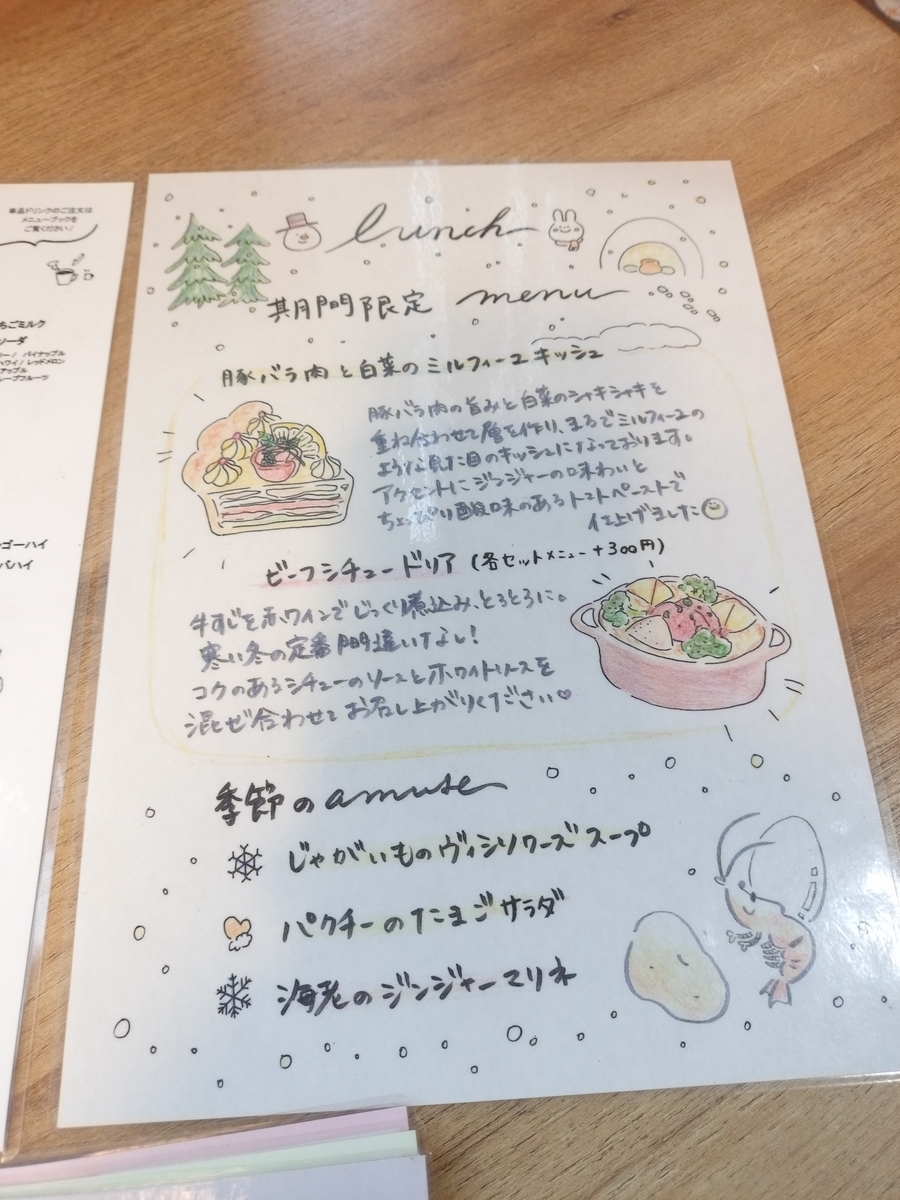 単品ドリンクのご注文は
メニューブックを
ご覧ください♪
ちごミルク
ソーダ
リー / パイナップル
ハワイ / レッドメロン
アップル
レープフルーツ
ゴーハイ
バハイ
lunch
期間限定 menu
豚バラ肉と白菜のミルフィーユキッシュ
豚バラ肉の旨みと白菜のシャキシャキを
重ね合わせて層を作り、まるでミルフィーユの
ような見た目のキッシュになっております。
アクセントにジンジャーの味わいと
ちょっぴり酸味のあるトマトペーストで
仕上げました
ビーフシチュードリア (各セットメニュー+300円)
牛すじを赤ワインでじっくり煮込み、とろとろに。
寒い冬の定番間違いなし!
コクのあるシチューのソースとホワイトソースを
混ぜ合わせてお召し上がりください♡
季節の amuse
じゃがいものヴィシソワーズスープ
パクチーのたまごサラダ
海老のジンジャーマリネ